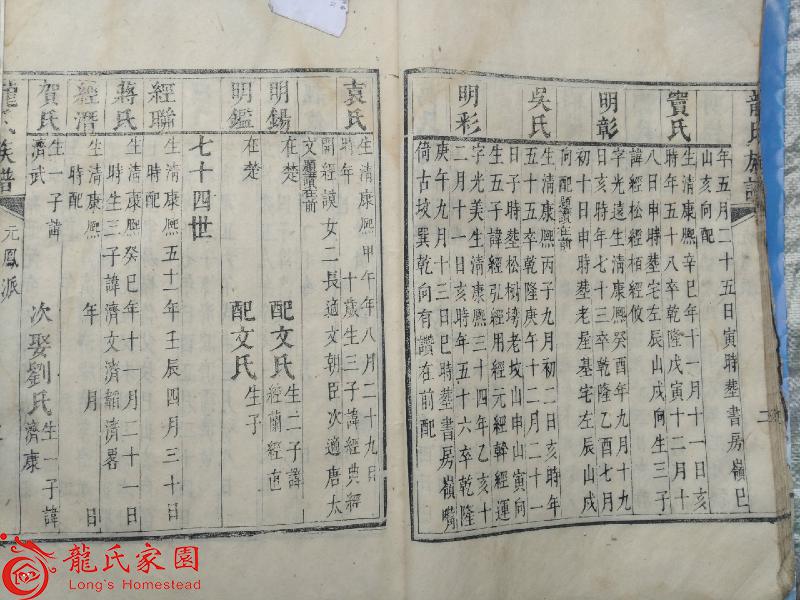 龍氏族譜
年五月二十五日寅時塟書房嶺巳
山亥向配
竇氏
生清康熙辛巳年十一月十一日亥
時年五十八卒乾隆戊寅十二月十
八日申時塟宅左辰山戍向生三子
諱經松經栢經攸
明彰
字光遠生清康熙癸酉年九月十九
日亥時年七十三卒乾隆乙酉七月
初十日申時塟老屋基宅左辰山戍
向配願讚在前
吳氏
生清康熙丙子九月初二日亥時年
五十五卒乾隆庚午十二月二十一
日子時塟松樹塝老坡山申山寅向
生五子諱經弘經用經元經幹經運
明彩
字光美生清康熙三十四年乙亥十
二月十一日亥時年五十六卒乾隆
庚午九月十三日巳時塟書房嶺嘴
倚古坟巽乾向有讚在前配
袁氏
生清康熙甲午年八月二十九日
時年 十歲生三子諱經典經
經謨女二長適文朝臣次適唐太
文願讚在前
明錫
在楚 配文氏生二子諱
經蘭經直
明鑑
在楚 配文氏生子
七十四世
經聯
生清康熙五十一年壬辰四月三十日
時配
蔣氏
生清康熙癸巳年十一月二十一日
時生三子諱濟文濟韜濟畧
經濳
生清康熙 年 月 日
時配
賀氏
生一子諱
濟武 次娶劉氏生一子諱
濟康
龍氏族譜 元鳳派
龍氏家園
Long's Homestead